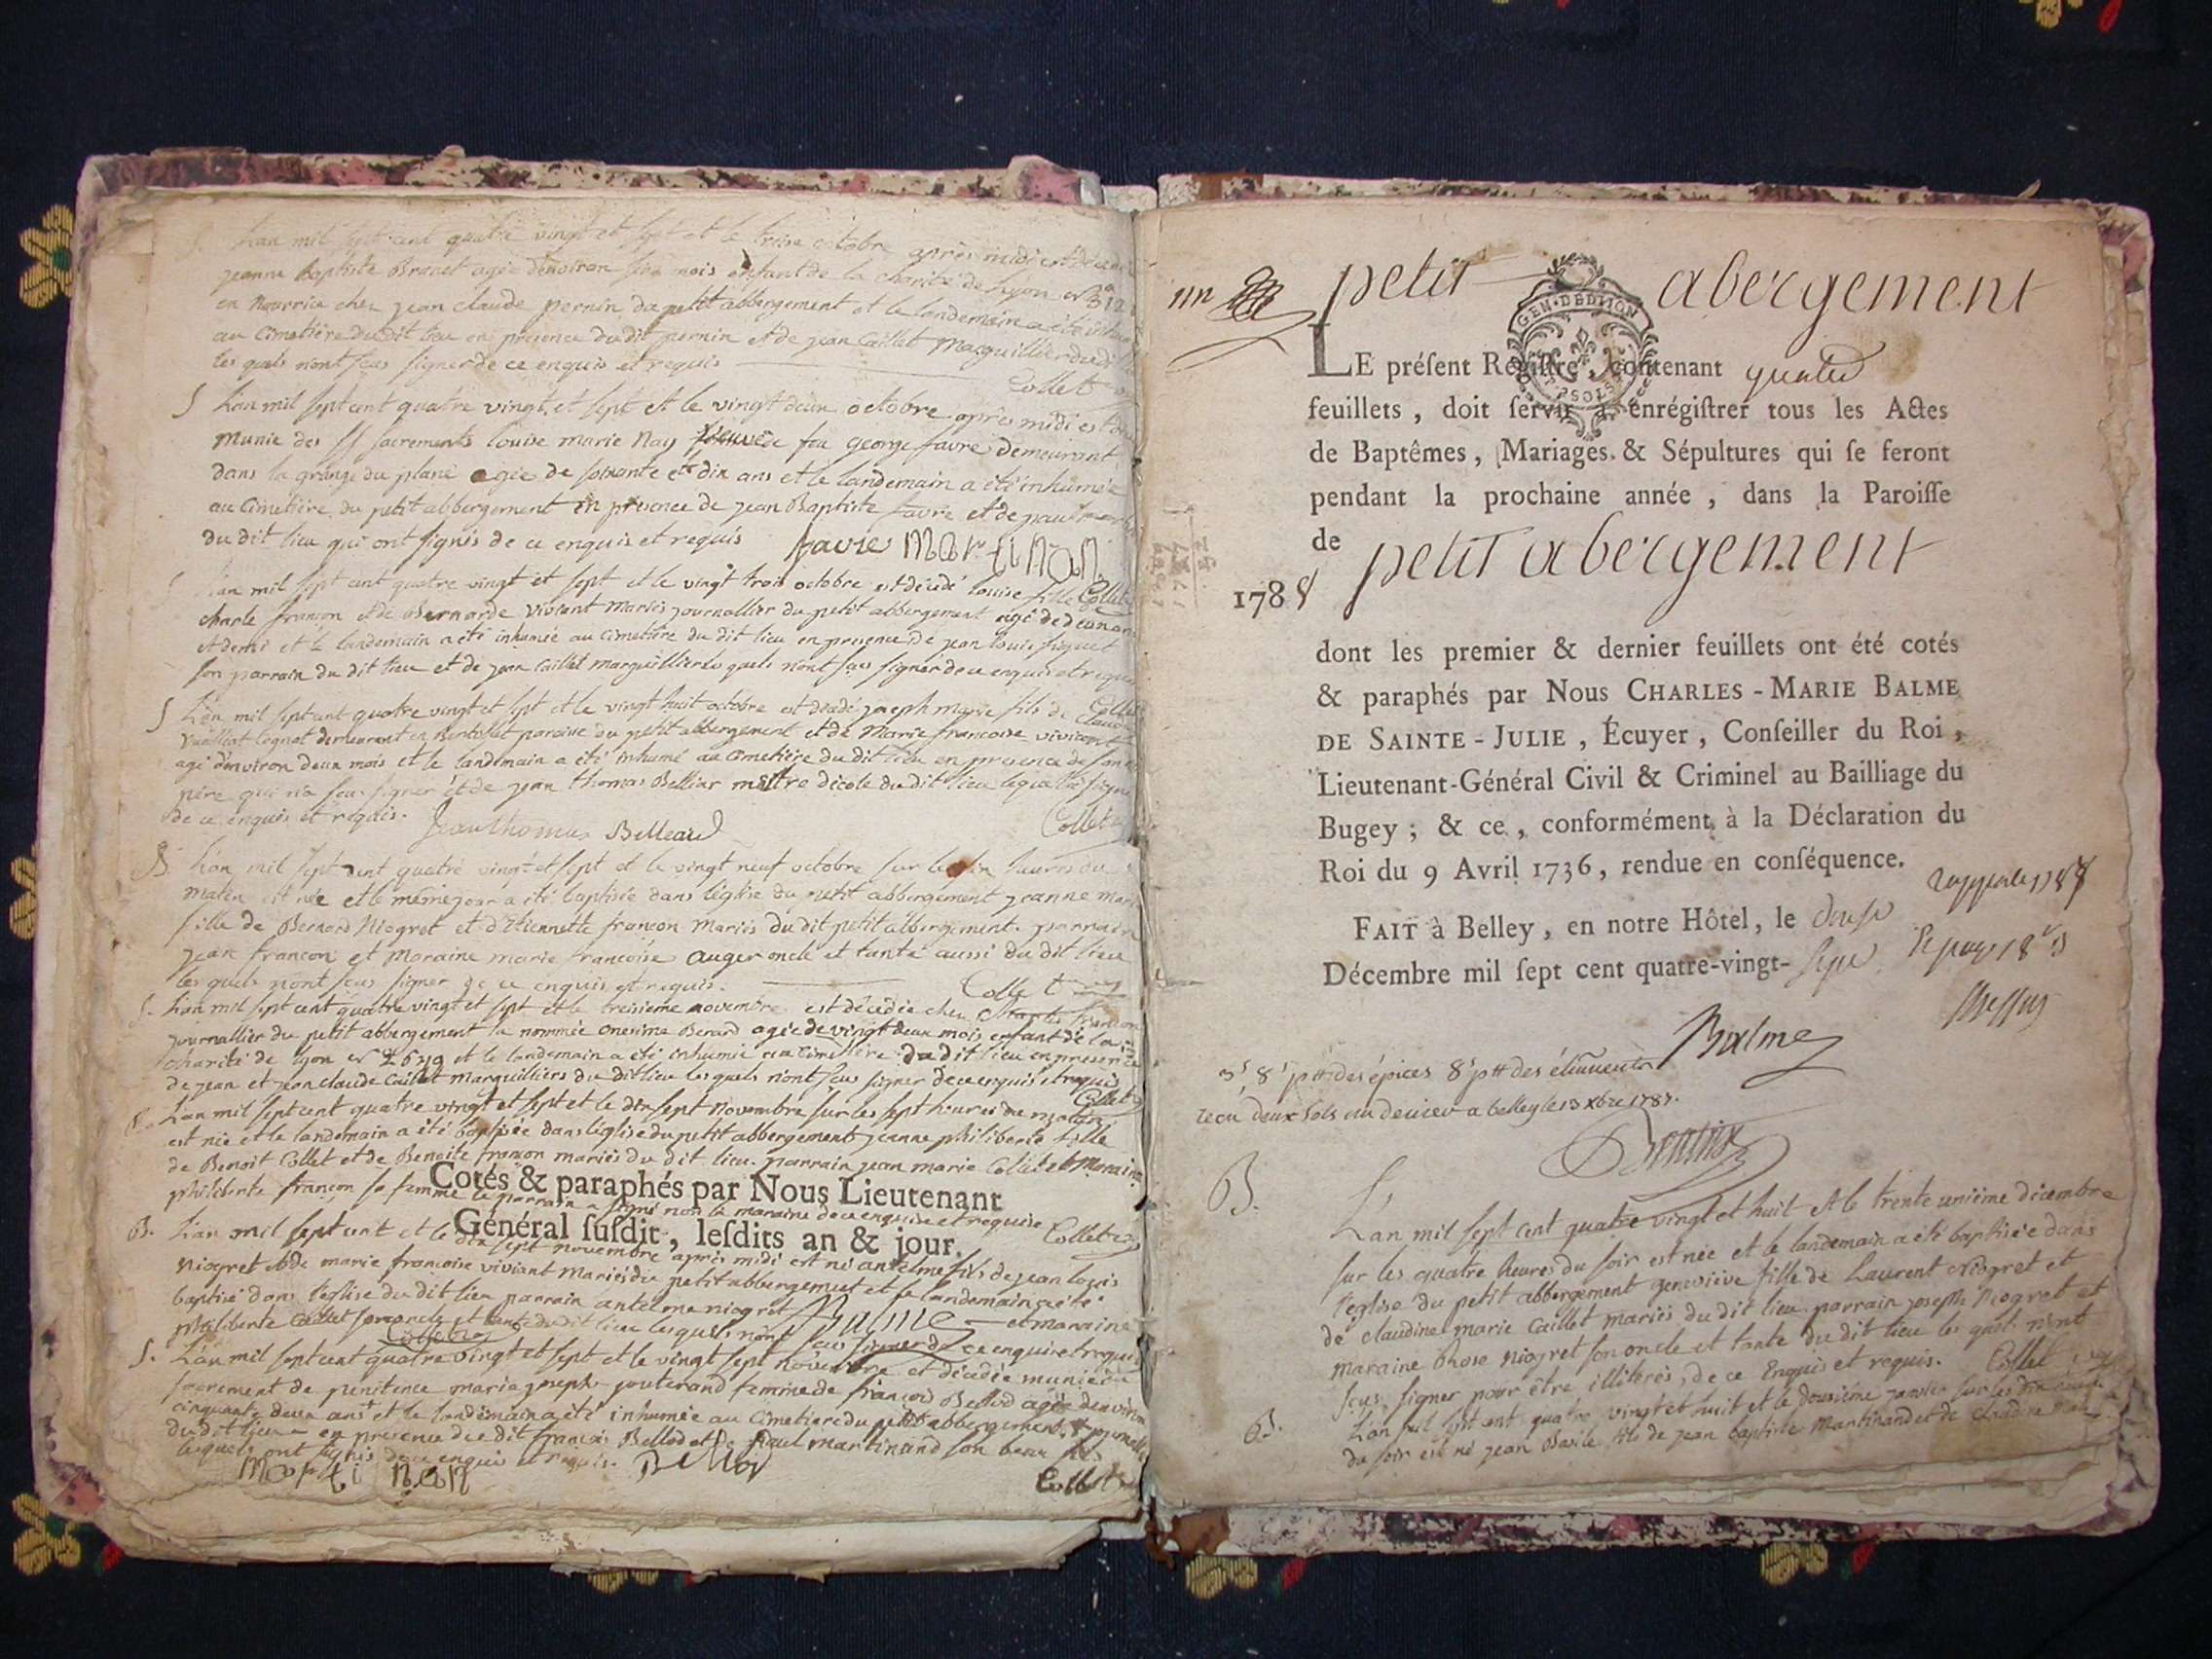 L'an mil sept cent quatre vingt et sept et le treise octobre après midi est décédée
jeanne baptiste Brunet agée denviron six mois enfant de la charité de lyon
en Nourrice chez jean claude pernin du petit abbergement et le landemain a été
au Cimetière du dit lieu en presence du dit pernin et de jean Caillet Marguillier du dit
les quels n'ont sçus signer de ce enquis et requis
Collet
S L'an mil sept cent quatre vingt et sept et le vingt deux octobre après midi est
munie des SS sacrements louise marie Nay veuve de feu george favre demeurant
dans la grange du plané agée de soixante et dix ans et le landemain a été inhumée
au Cimetière du petit abbergement en présence de jean Baptiste favre et de paul
du dit lieu qui ont signés de ce enquis et requis favre Martinan
L'an mil sept cent quatre vingt et sept et le vingt trois octobre est décédé louise fille Collet
charle françon et de Bernarde viviant mariés journallier du petit abbergement agé de deux ans
et demi et le landemain a été inhumée au cimetière du dit lieu en presence de jean louis
son parrain du dit lieu et de jean Caillet marguillier les quels n'ont sçus signer de ce enquis et requis
Collet
S L'an mil sept cent quatre vingt et sept et le vingt huit octobre est décédé joseph Marie fils de Claude
demeurant en paroisse du petit abbergement et de Marie francoise viviant
agé d'environ deux mois et le landemain a été inhumé au cimetière du dit lieu en presence de son
père qui n'a sçus signer et de jean thomas Belliar maître d'école du dit lieu lequel a signé
de ce enquis et requis. Jean thomas Belleard Collet
B. L'an mil sept cent quatre vingt et sept et le vingt neuf octobre sur les heures du
matin est née et le même jour a été baptisée dans l'église du petit abbergement jeanne marie
fille de Bernard Niogret et d'Etiennette françon Mariés du dit petit abbergement. parrain
jean francon et Maraine marie francoise auger oncle et tante aussi du dit lieu
les quels n'ont sçus signer de ce enquis et requis. Collet
S. L'an mil sept cent quatre vingt et sept et le treisieme novembre est décédée chez Charles françon
journallier du petit abbergement la nommée onesime Berard agée de vingt deux mois enfant de la
charité de lyon et le landemain a été inhumée au Cimetière du dit lieu en presence
de jean et jean claude Caillet Marguilliers du dit lieu les quels n'ont sçus signer de ce enquis et requis
Collet
B. L'an mil sept cent quatre vingt et sept et le dix sept Novembre sur les sept heures du matin
est née et le landemain a été baptisée dans l'église du petit abbergement jeanne philiberte fille
de Benoit Collet et de Benoite françon mariés du dit lieu. parrain jean marie Collet et Maraine
philiberte françon sa femme le parrain a signé non la maraine de ce enquise et requise Collet
Cotés & paraphés par Nous Lieutenant
Général ſuſdit, leſdits an & jour.
B. L'an mil sept cent et le dix sept novembre après midi est né antelme fils de jean louis
Niogret et de marie francoise viviant Mariés du petit abbergement et le landemain a été
baptisé dans l'église du dit lieu parrain antelme niogret et maraine
philiberte Collet son oncle et tante du dit lieu lesquels n'ont sçus signer de ce enquis et requis
Balme
Collet
S. L'an mil sept cent quatre vingt et sept et le vingt sept novembre est décédée munie du
sacrement de penitence marie joseph jouterand femme de françois Bellod agée denviron
cinquante deux ans et le landemain a été inhumée au Cimetiere du petit abbergement
du dit lieu en presence du dit françois Bellod et de paul martinand son beau fils
lesquels ont signés de ce enquis et requis. Bellod
Martinan Collet
un petit abergement
GEN. DE DIJON
LE préſent Régiſtre, contenant quatre
feuillets, doit ſervir à enrégiſtrer tous les Actes
de Baptêmes, Mariages & Sépultures qui ſe feront
pendant la prochaine année, dans la Paroiſſe
de petit abergement
1788
dont les premier & dernier feuillets ont été cotés
& paraphés par Nous CHARLES-MARIE BALME
DE SAINTE-JULIE, Écuyer, Conſeiller du Roi,
Lieutenant-Général Civil & Criminel au Bailliage du
Bugey; & ce, conformément à la Déclaration du
Roi du 9 Avril 1736, rendue en conſéquence.
FAIT à Belley, en notre Hôtel, le douse
Décembre mil ſept cent quatre-vingt-sept
Balme
3s 8 des épices 8s
recu deux sols du denier a belley le 13 xbre 1787.
B. L'an mil sept cent quatre vingt et huit et le trente unième décembre
sur les quatre heures du soir est née et le landemain a été baptisée dans
l'église du petit abbergement geneviève fille de Laurent Niogret et
de claudine marie Caillet mariés du dit lieu. parrain joseph Niogret et
Maraine Rose Niogret son oncle et tante du dit lieu les quels n'ont
sçus signer pour être illiterés, de ce Enquis et requis. Collet
B. L'an mil sept cent quatre vingt et huit et le dousième janvier sur les
du soir est né jean Basile fils de jean baptiste Martinand et de claudine